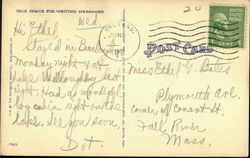 THIS SPACE FOR WRITING MESSAGES
20
Wed
Hi Ethel
Stayed in
Monday night & at
Lake Willoughby last
night. Had a wonderful
log cabin right on the
Lake. See you soon,
Dot.
JUN 5
POST CARD
Miss Ethel G. Bates
Plymouth Ave
corner of Conant St.
Fall River
Mass.